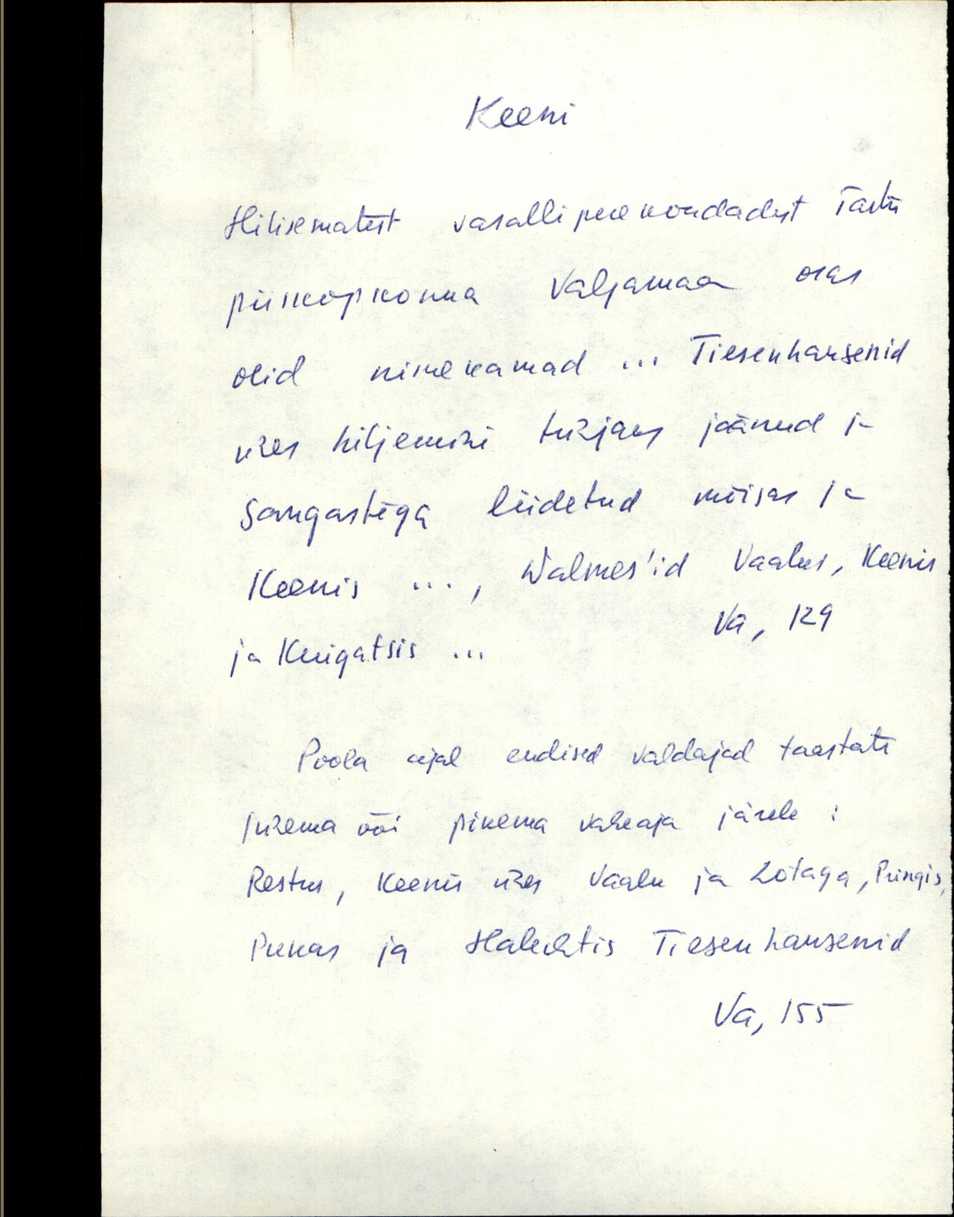 Keeni
Hilisematest vasalliperekondadest Tartu
piiskopkonna Valgamaa osas
olid nimekamad ... Tiesenhausenid
ühes hiljemini tühjaks jäänud ja
Sangastega liidetud mõisas ja
Keenis ..., Walmes'id Vaalus, Keenis
ja Kuigatsis ... Va, 129
Poola ajal endised valdajad taastati
lühema või pikema vaheaja järele :
Restus, Keenis ühes Vaalu ja Lotaga, Pringis,
Pukas ja Tiesenhausenid
Va, 155